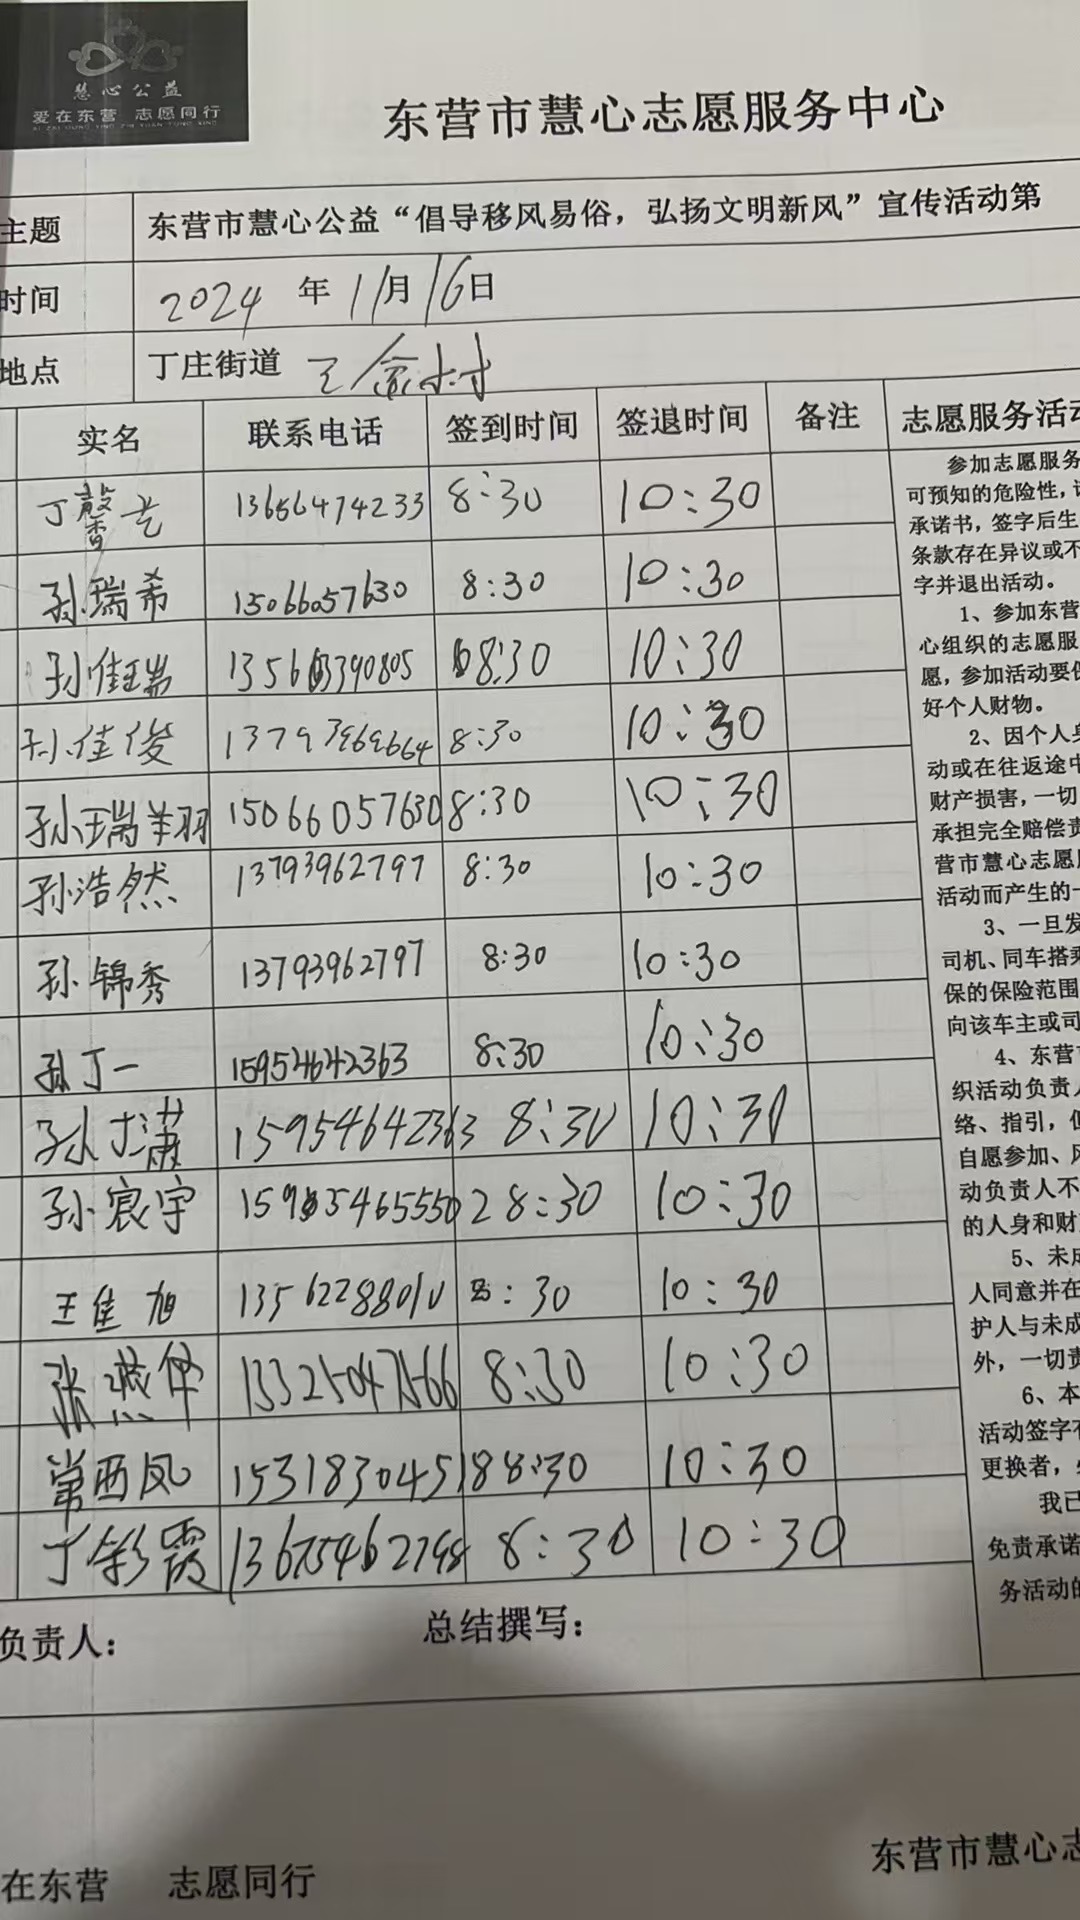 慧心公益
爱在东营 志愿同行
AI ZAI DONG YING ZHI YUAN TONG XING
东营市慧心志愿服务中心
主题 东营市慧心公益“倡导移风易俗，弘扬文明新风”宣传活动第
时间 2024 年 11月16日
地点 丁庄街道 村
实名 联系电话 签到时间 签退时间 备注 志愿服务活动
丁馨艺 13656474233 8:30 10:30
孙瑞希 15066057630 8:30 10:30
孙佳瑞 8:30 10:30
孙佳俊 8:30 10:30
孙瑞羽 15066057630 8:30 10:30
孙浩然 13793962797 8:30 10:30
孙锦秀 13793962797 8:30 10:30
孙丁一 15954642363 8:30 10:30
孙丁潇 15954642363 8:30 10:30
孙宸宇 8:30 10:30
王佳旭 8:30 10:30
张 8:30 10:30
常西凤 15318304518 8:30 10:30
丁彩霞 8:30 10:30
参加志愿服务
可预知的危险性，
承诺书，签字后生
条款存在异议或不
字并退出活动。
1、参加东营
心组织的志愿服
愿，参加活动要
好个人财物。
2、因个人身
动或在往返途中
财产损害，一切
承担完全赔偿责
营市慧心志愿
活动而产生的一
3、一旦发
司机、同车搭乘
保的保险范围
向该车主或司
4、东营
织活动负责人
络、指引，但
自愿参加、风
动负责人不
的人身和财
5、未成
人同意并在
护人与未成
外，一切责
6、本
活动签字
更换者，
我已
免责承诺
务活动的
负责人： 总结撰写：
在东营 志愿同行
东营市慧心志